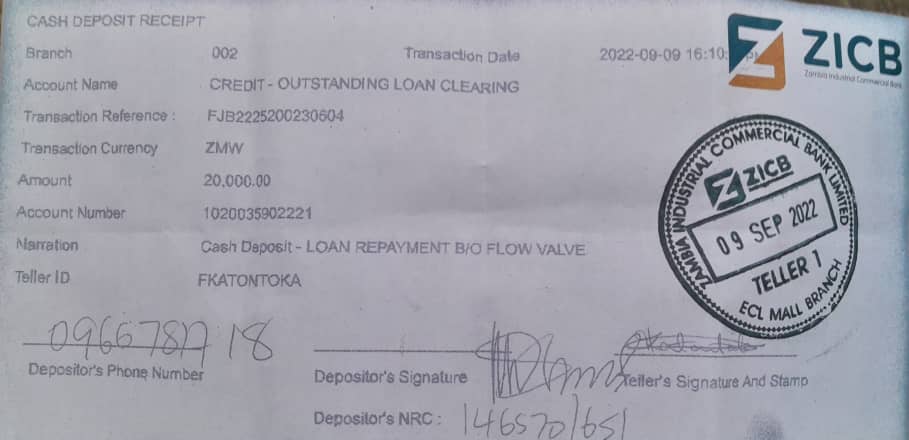 CASH DEPOSIT RECEIPT
Branch 002 Transaction Date 2022-09-09 16:10:
ZICB
Zambia Industrial Commercial Bank
Account Name CREDIT - OUTSTANDING LOAN CLEARING
Transaction Reference : FJB2225200230604
Transaction Currency ZMW
Amount 20,000.00
Account Number 1020035902221
Narration Cash Deposit - LOAN REPAYMENT B/O FLOW VALVE
Teller ID FKATONTOKA
ZAMBIA INDUSTRIAL COMMERCIAL BANK LIMITED
ZICB
09 SEP 2022
TELLER 1
ECL MALL BRANCH
Depositor's Phone Number
Depositor's Signature
Teller's Signature And Stamp
Depositor's NRC :